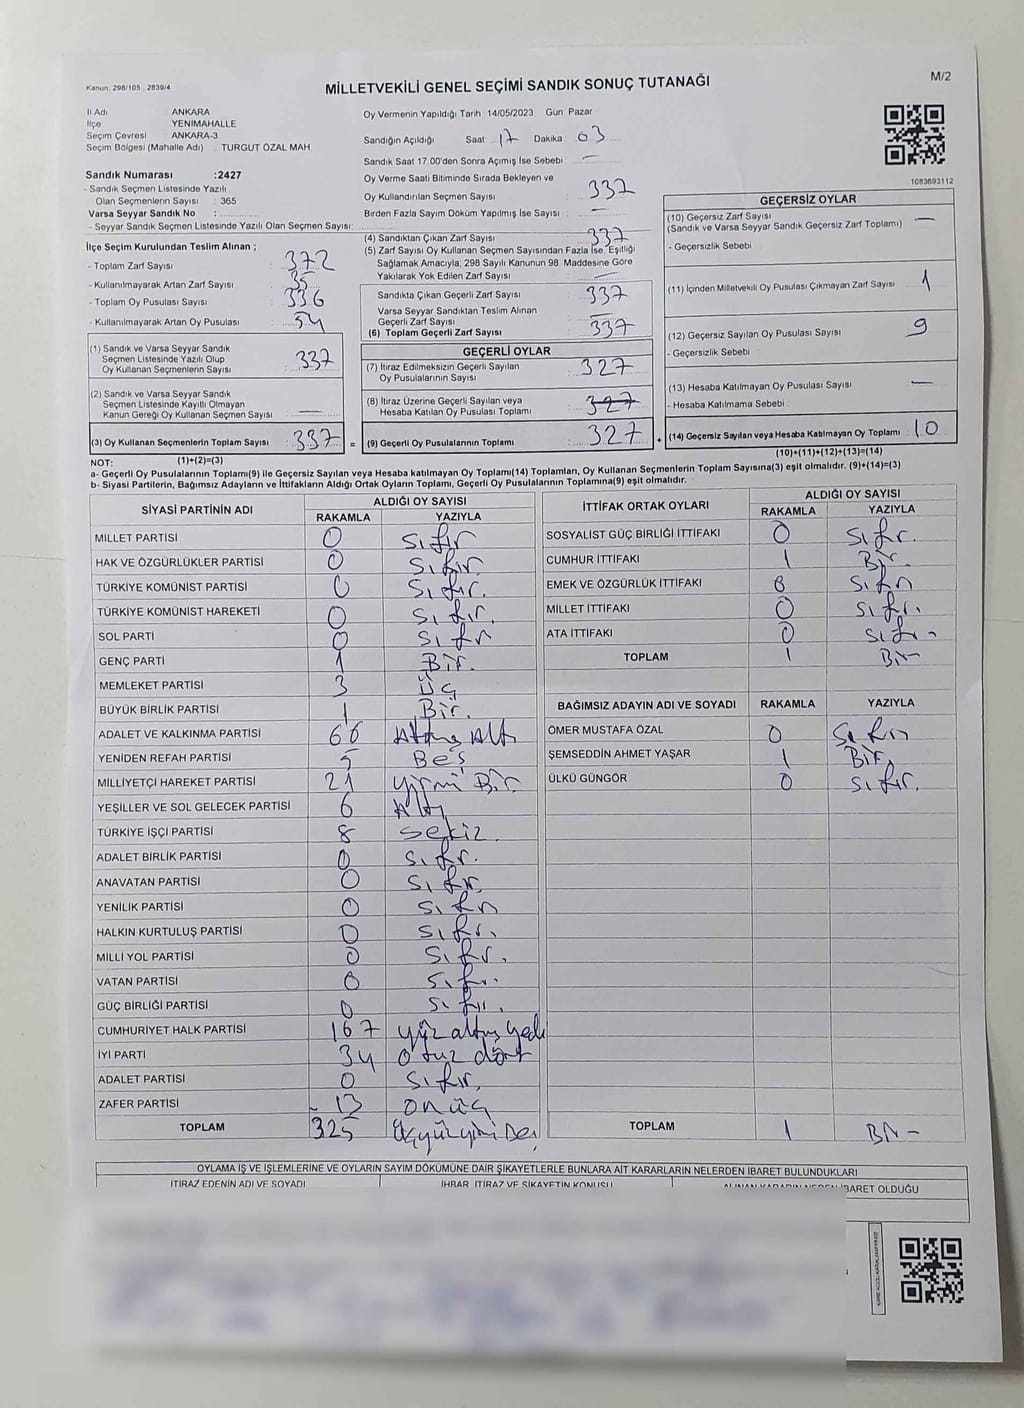 Kanun: 298/105 , 2839/4
MİLLETVEKİLİ GENEL SEÇİMİ SANDIK SONUÇ TUTANAĞI
M/2
İl Adı ANKARA
İlçe YENİMAHALLE
Seçim Çevresi ANKARA-3
Seçim Bölgesi (Mahalle Adı) : TURGUT ÖZAL MAH.
Oy Vermenin Yapıldığı Tarih 14/05/2023 Gün Pazar
Sandığın Açıldığı Saat: 17 Dakika 03
Sandık Saat 17:00'den Sonra Açımış İse Sebebi : —
Oy Verme Saati Bitiminde Sırada Bekleyen ve
Oy Kullandırılan Seçmen Sayısı 337
Birden Fazla Sayım Döküm Yapılmış İse Sayısı : —
1083693112
Sandık Numarası :2427
- Sandık Seçmen Listesinde Yazılı
Olan Seçmenlerin Sayısı : 365
Varsa Seyyar Sandık No :
- Seyyar Sandık Seçmen Listesinde Yazılı Olan Seçmen Sayısı:
İlçe Seçim Kurulundan Teslim Alınan ;
- Toplam Zarf Sayısı : 372
- Kullanılmayarak Artan Zarf Sayısı : 35
- Toplam Oy Pusulası Sayısı : 336
- Kullanılmayarak Artan Oy Pusulası : 54
(1) Sandık ve Varsa Seyyar Sandık
Seçmen Listesinde Yazılı Olup
Oy Kullanan Seçmenlerin Sayısı : 337
(2) Sandık ve Varsa Seyyar Sandık
Seçmen Listesinde Kayıtlı Olmayan
Kanun Gereği Oy Kullanan Seçmen Sayısı : —
(3) Oy Kullanan Seçmenlerin Toplam Sayısı : 337 =
(1)+(2)=(3)
(4) Sandıktan Çıkan Zarf Sayısı : 337
(5) Zarf Sayısı Oy Kullanan Seçmen Sayısından Fazla İse, Eşitliği
Sağlamak Amacıyla; 298 Sayılı Kanunun 98. Maddesine Göre
Yakılarak Yok Edilen Zarf Sayısı : —
Sandıkta Çıkan Geçerli Zarf Sayısı : 337
Varsa Seyyar Sandıktan Teslim Alınan
Geçerli Zarf Sayısı : —
(6) Toplam Geçerli Zarf Sayısı : 337
GEÇERLİ OYLAR
(7) İtiraz Edilmeksizin Geçerli Sayılan
Oy Pusulalarının Sayısı : 327
(8) İtiraz Üzerine Geçerli Sayılan veya
Hesaba Katılan Oy Pusulası Toplamı : 327
(9) Geçerli Oy Pusulalarının Toplamı : 327 +
GEÇERSİZ OYLAR
(10) Geçersiz Zarf Sayısı : —
(Sandık ve Varsa Seyyar Sandık Geçersiz Zarf Toplamı)
- Geçersizlik Sebebi :
(11) İçinden Milletvekili Oy Pusulası Çıkmayan Zarf Sayısı : 1
(12) Geçersiz Sayılan Oy Pusulası Sayısı : 9
- Geçersizlik Sebebi :
(13) Hesaba Katılmayan Oy Pusulası Sayısı : —
- Hesaba Katılmama Sebebi :
(14) Geçersiz Sayılan veya Hesaba Katılmayan Oy Toplamı : 10
(10)+(11)+(12)+(13)=(14)
NOT:
a- Geçerli Oy Pusulalarının Toplamı(9) ile Geçersiz Sayılan veya Hesaba katılmayan Oy Toplamı(14) Toplamları, Oy Kullanan Seçmenlerin Toplam Sayısına(3) eşit olmalıdır. (9)+(14)=(3)
b- Siyasi Partilerin, Bağımsız Adayların ve İttifakların Aldığı Ortak Oyların Toplamı, Geçerli Oy Pusulalarının Toplamına(9) eşit olmalıdır.
SİYASİ PARTİNİN ADI ALDIĞI OY SAYISI
RAKAMLA YAZIYLA
MİLLET PARTİSİ 0 Sıfır
HAK VE ÖZGÜRLÜKLER PARTİSİ 0 Sıfır.
TÜRKİYE KOMÜNİST PARTİSİ 0 Sıfır.
TÜRKİYE KOMÜNİST HAREKETİ 0 Sıfır.
SOL PARTİ 0 Sıfır
GENÇ PARTİ 1 Bir.
MEMLEKET PARTİSİ 3 Üç
BÜYÜK BİRLİK PARTİSİ 1 Bir.
ADALET VE KALKINMA PARTİSİ 66 Altmış Altı
YENİDEN REFAH PARTİSİ 5 Beş
MİLLİYETÇİ HAREKET PARTİSİ 21 yirmi Bir.
YEŞİLLER VE SOL GELECEK PARTİSİ 6 Altı
TÜRKİYE İŞÇİ PARTİSİ 8 Sekiz.
ADALET BİRLİK PARTİSİ 0 Sıfır.
ANAVATAN PARTİSİ 0 Sıfır.
YENİLİK PARTİSİ 0 Sıfır
HALKIN KURTULUŞ PARTİSİ 0 Sıfır.
MİLLİ YOL PARTİSİ 0 Sıfır.
VATAN PARTİSİ 0 Sıfır.
GÜÇ BİRLİĞİ PARTİSİ 0 Sıfır.
CUMHURİYET HALK PARTİSİ 167 yüz altmış yedi
İYİ PARTİ 34 otuz dört
ADALET PARTİSİ 0 Sıfır.
ZAFER PARTİSİ 13 onüç
TOPLAM 325 Üçyüzyirmi Beş
İTTİFAK ORTAK OYLARI ALDIĞI OY SAYISI
RAKAMLA YAZIYLA
SOSYALİST GÜÇ BİRLİĞİ İTTİFAKI 0 Sıfır.
CUMHUR İTTİFAKI 1 Bir.
EMEK VE ÖZGÜRLÜK İTTİFAKI 0 Sıfır
MİLLET İTTİFAKI 0 Sıfır.
ATA İTTİFAKI 0 Sıfır
TOPLAM 1 Bir
BAĞIMSIZ ADAYIN ADI VE SOYADI RAKAMLA YAZIYLA
ÖMER MUSTAFA ÖZAL 0 Sıfır
ŞEMSEDDİN AHMET YAŞAR 1 Bir.
ÜLKÜ GÜNGÖR 0 Sıfır.
TOPLAM 1 Bir
OYLAMA İŞ VE İŞLEMLERİNE VE OYLARIN SAYIM DÖKÜMÜNE DAİR ŞİKAYETLERLE BUNLARA AİT KARARLARIN NELERDEN İBARET BULUNDUKLARI
İTİRAZ EDENİN ADI VE SOYADI İHBAR, İTİRAZ VE ŞİKAYETİN KONUSU ALINAN KARARIN NEDEN İBARET OLDUĞU